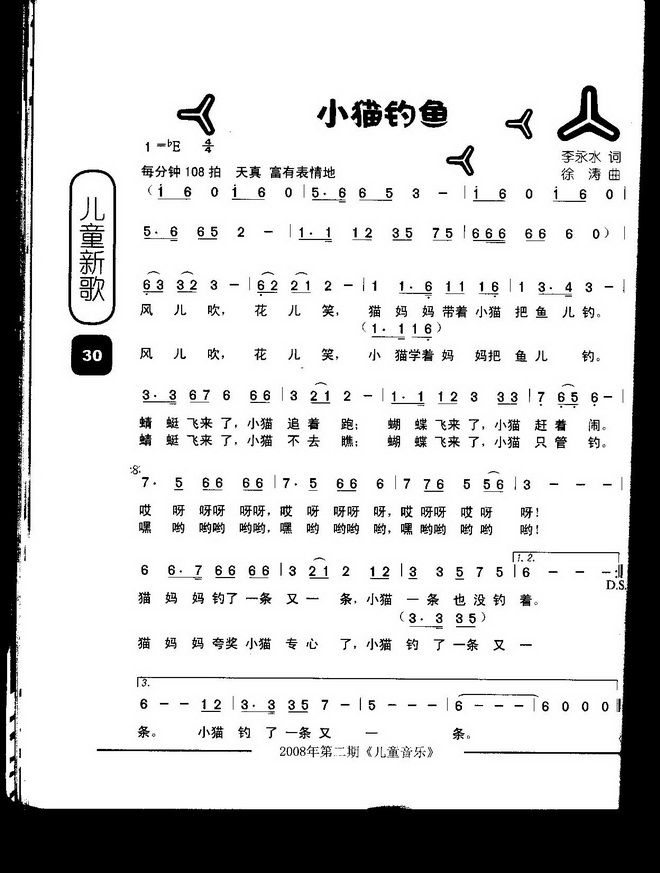 小猫钓鱼
1=♭E 4/4
李永水 词
每分钟 108 拍 天真 富有表情地
徐涛 曲
儿童新歌
30
(i 6 0 i 6 0 | 5· 6 6 5 3 - | i 6 0 i 6 0 |
5· 6 6 5 2 - | 1· 1 1 2 3 5 7 5 | 6 6 6 6 6 6 0) |
6 3 3 2 3 - | 6 2 2 1 2 - | 1 1· 6 1 1 1 6 | 1 3· 4 3 - |
风 儿 吹, 花 儿 笑, 猫 妈 妈 带着 小猫 把 鱼 儿 钓。
(1· 1 1 6)
风 儿 吹, 花 儿 笑, 小 猫学着 妈 妈把 鱼 儿 钓。
3· 3 6 7 6 6 6 | 3 2 1 2 - | 1· 1 1 2 3 3 3 | 7 6 5 6 - |
蜻 蜓 飞来 了, 小猫 追 着 跑; 蝴 蝶 飞来 了, 小猫 赶 着 闹。
蜻 蜓 飞来 了, 小猫 不 去 瞧; 蝴 蝶 飞来 了, 小猫 只 管 钓。
:8:
7· 5 6 6 6 6 | 7· 5 6 6 6 | 7 7 6 5 5 6 | 3 - - |
哎 呀 呀呀 呀呀, 哎 呀 呀呀 呀, 哎呀呀 呀 哎呀 呀!
嘿 哟 哟哟 哟哟, 嘿 哟 哟哟 哟, 嘿哟哟 哟 哟哟 哟!
1. 2.
6 6· 7 6 6 6 6 | 3 2 1 2 1 2 | 3 3 5 7 5 | 6 - - - :||
D.S.
猫 妈 妈 钓了 一条 又 一 条, 小猫 一 条 也 没 钓 着。
(3· 3 3 5)
猫 妈 妈 夸奖 小猫 专 心 了, 小猫 钓 了 一条 又 一
3.
6 - - 1 2 | 3· 3 3 5 7 | 5 - - - | 6 - - - | 6 0 0 0 ||
条。 小猫 钓 了 一条 又 一 条。
2008年第二期《儿童音乐》